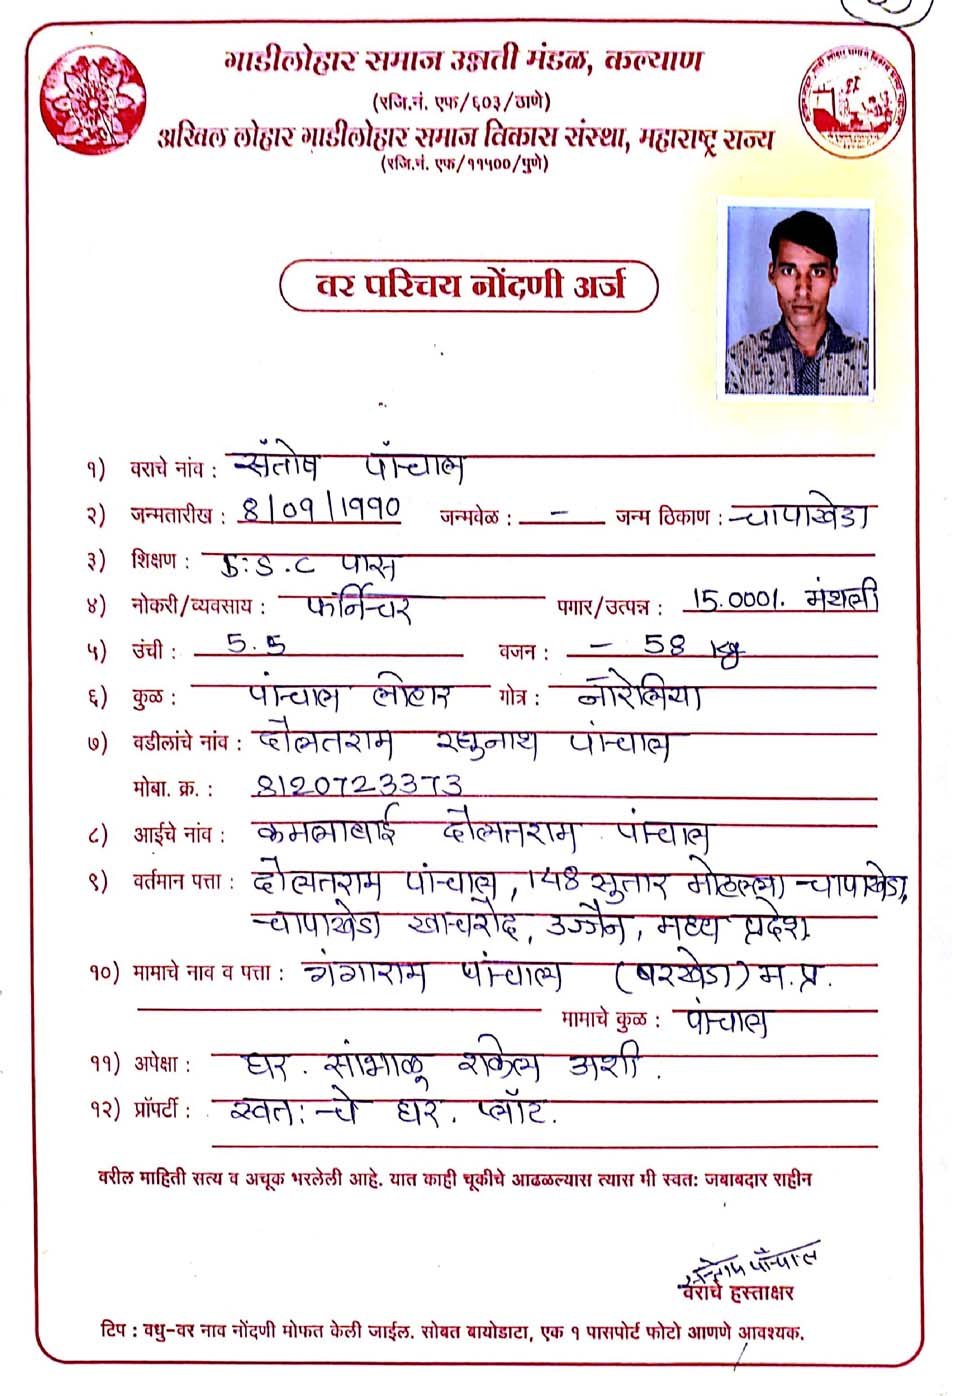 गाडीलोहार समाज उन्नती मंडळ, कल्याण
(रजि.नं. एफ/६०३/ठाणे)
अखिल लोहार गाडीलोहार समाज विकास संस्था, महाराष्ट्र राज्य
(रजि.नं. एफ/११५००/पुणे)
वर परिचय नोंदणी अर्ज
१) वराचे नांव : संतोष पांचाल
२) जन्मतारीख : 8/09/1990 जन्मवेळ : - जन्म ठिकाण : चापाखेडा
३) शिक्षण : S.C पास
४) नोकरी/व्यवसाय : फर्निचर पगार/उत्पन्न : 15.000/. मंथली
५) उंची : 5.5 वजन : - 58 kg
६) कुळ : पांचाल लोहार गोत्र : नारेलिया
७) वडीलांचे नांव : दौलतराम रघुनाथ पांचाल
मोबा. क्र. : 8120723373
८) आईचे नांव : कमलाबाई दौलतराम पांचाल
९) वर्तमान पत्ता : दौलतराम पांचाल, 148 सुतार मोहल्ला चापाखेडा,
चापाखेडा खाचरौद, उज्जैन, मध्य प्रदेश
१०) मामाचे नाव व पत्ता : गंगाराम पांचाल (बरखेडा) म.प्र.
मामाचे कुळ : पांचाल
११) अपेक्षा : घर. सांभाळू शकेल अशी.
१२) प्रॉपर्टी : स्वतः चे घर. प्लॉट.
वरील माहिती सत्य व अचूक भरलेली आहे. यात काही चूकीचे आढळल्यास त्यास मी स्वत: जबाबदार राहीन
संतोष पाँचाल
वराचे हस्ताक्षर
टिप : वधु-वर नाव नोंदणी मोफत केली जाईल. सोबत बायोडाटा, एक १ पासपोर्ट फोटो आणणे आवश्यक.